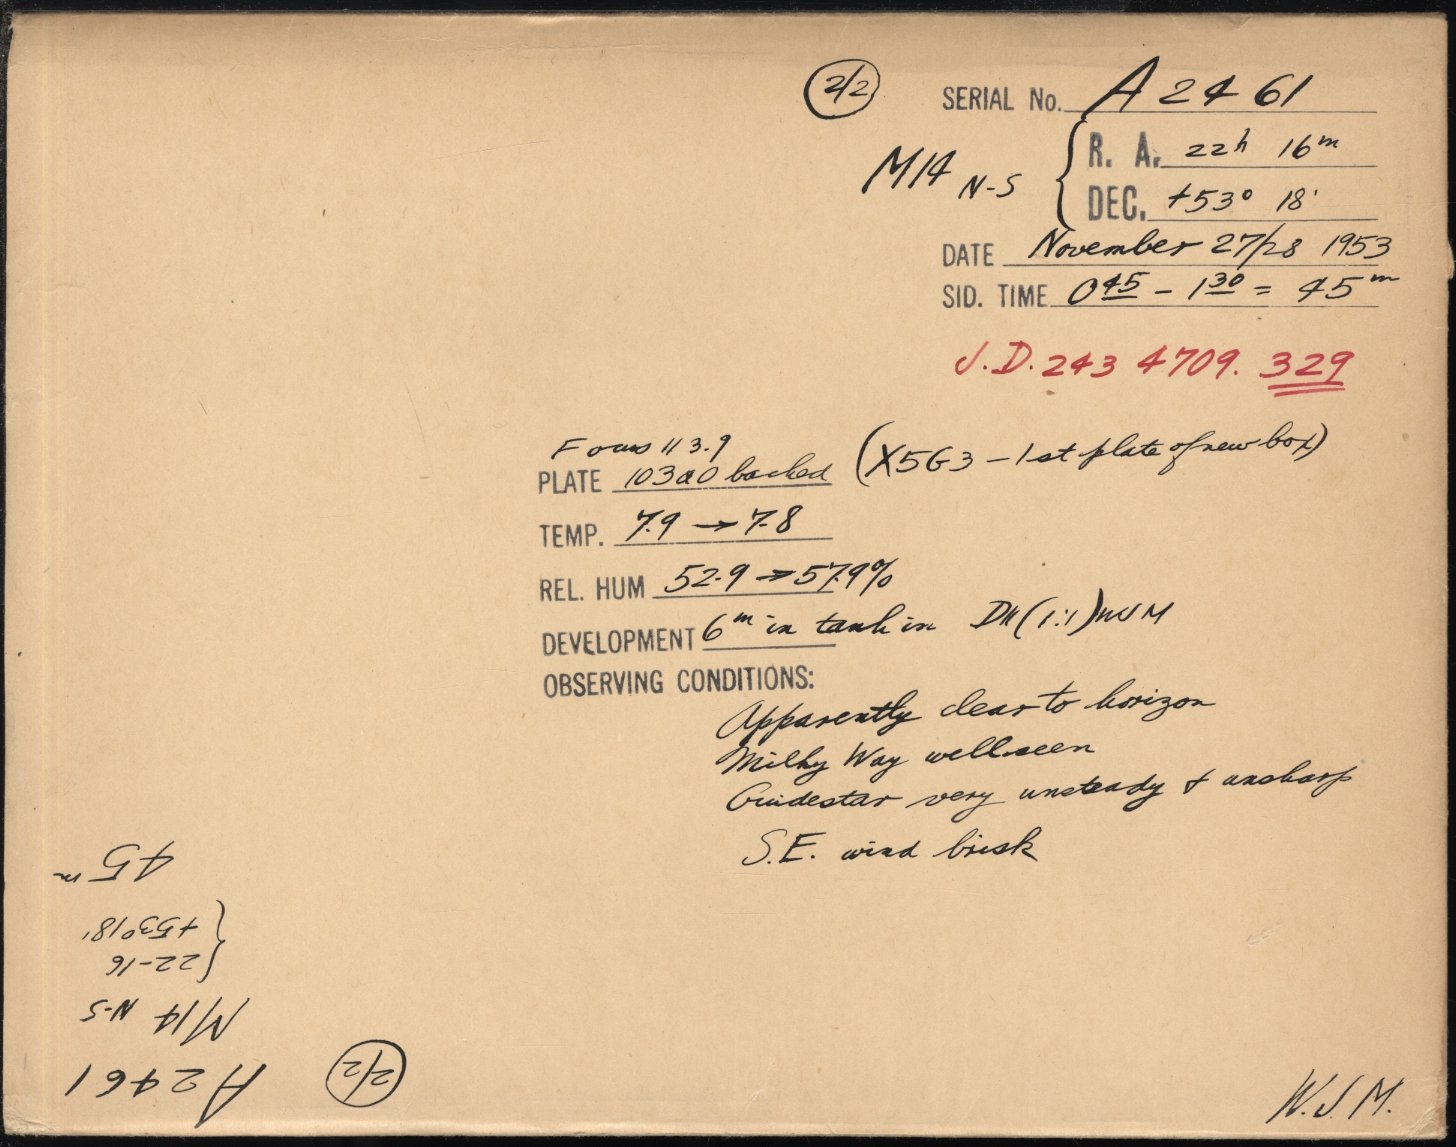 2/2
SERIAL No. A 2461
M14 N-S
R. A. 22h 16m
DEC. +53° 18'
DATE November 27/28 1953
SID. TIME 0 45 – 1 30 = 45m
J.D. 243 4709. 329
Focus 113.9
PLATE 103aO backed (X5G3 – 1st plate of new box)
TEMP. 7.9 → 7.8
REL. HUM 52.9 → 57.9%
DEVELOPMENT 6m in tank in (1:1) WJM
OBSERVING CONDITIONS:
Apparently clear to horizon
Milky Way well seen
Guidestar very unsteady & unsharp
S.E. wind brisk
W.J.M.
A 2461 2/2
M14 N-S
22-16
+53°18'
45m